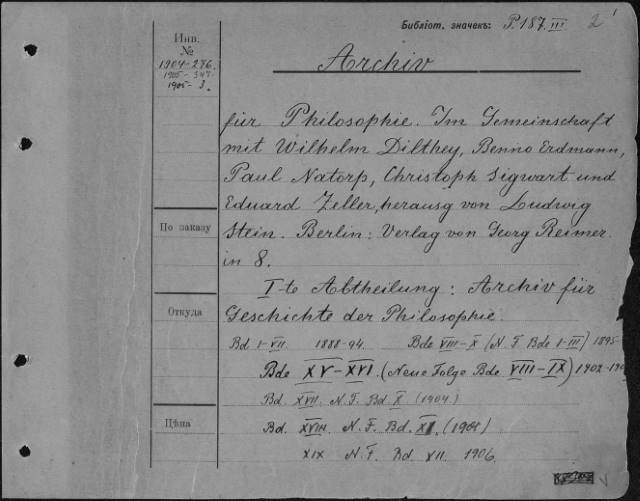 Библіот. значекъ: P.187.III 2
Инв.
№
1904-276.
1905-347.
1905-3.
Archiv
für Philosophie. Im Gemeinschaft
mit Wilhelm Dilthey, Benno Erdmann,
Paul Natorp, Christoph Sigwart und
Eduard Zeller, herausg von Ludwig
Stein. Berlin: Verlag von Georg Reimer
in 8.
По заказу
I-te Abtheilung: Archiv für
Geschichte der Philosophie.
Откуда
Bd I-VII. 1888-94. Bde VIII-X (N. F. Bde I-III) 1895-
Bde XV-XVI. (Neue Folge Bde VIII-IX) 1902-190
Bd. XVII. N. F. Bd. X. (1904.)
Цѣна
Bd. XVIII. N. F. Bd. XI. (1905)
XIX N. F. Bd XII. 1906.